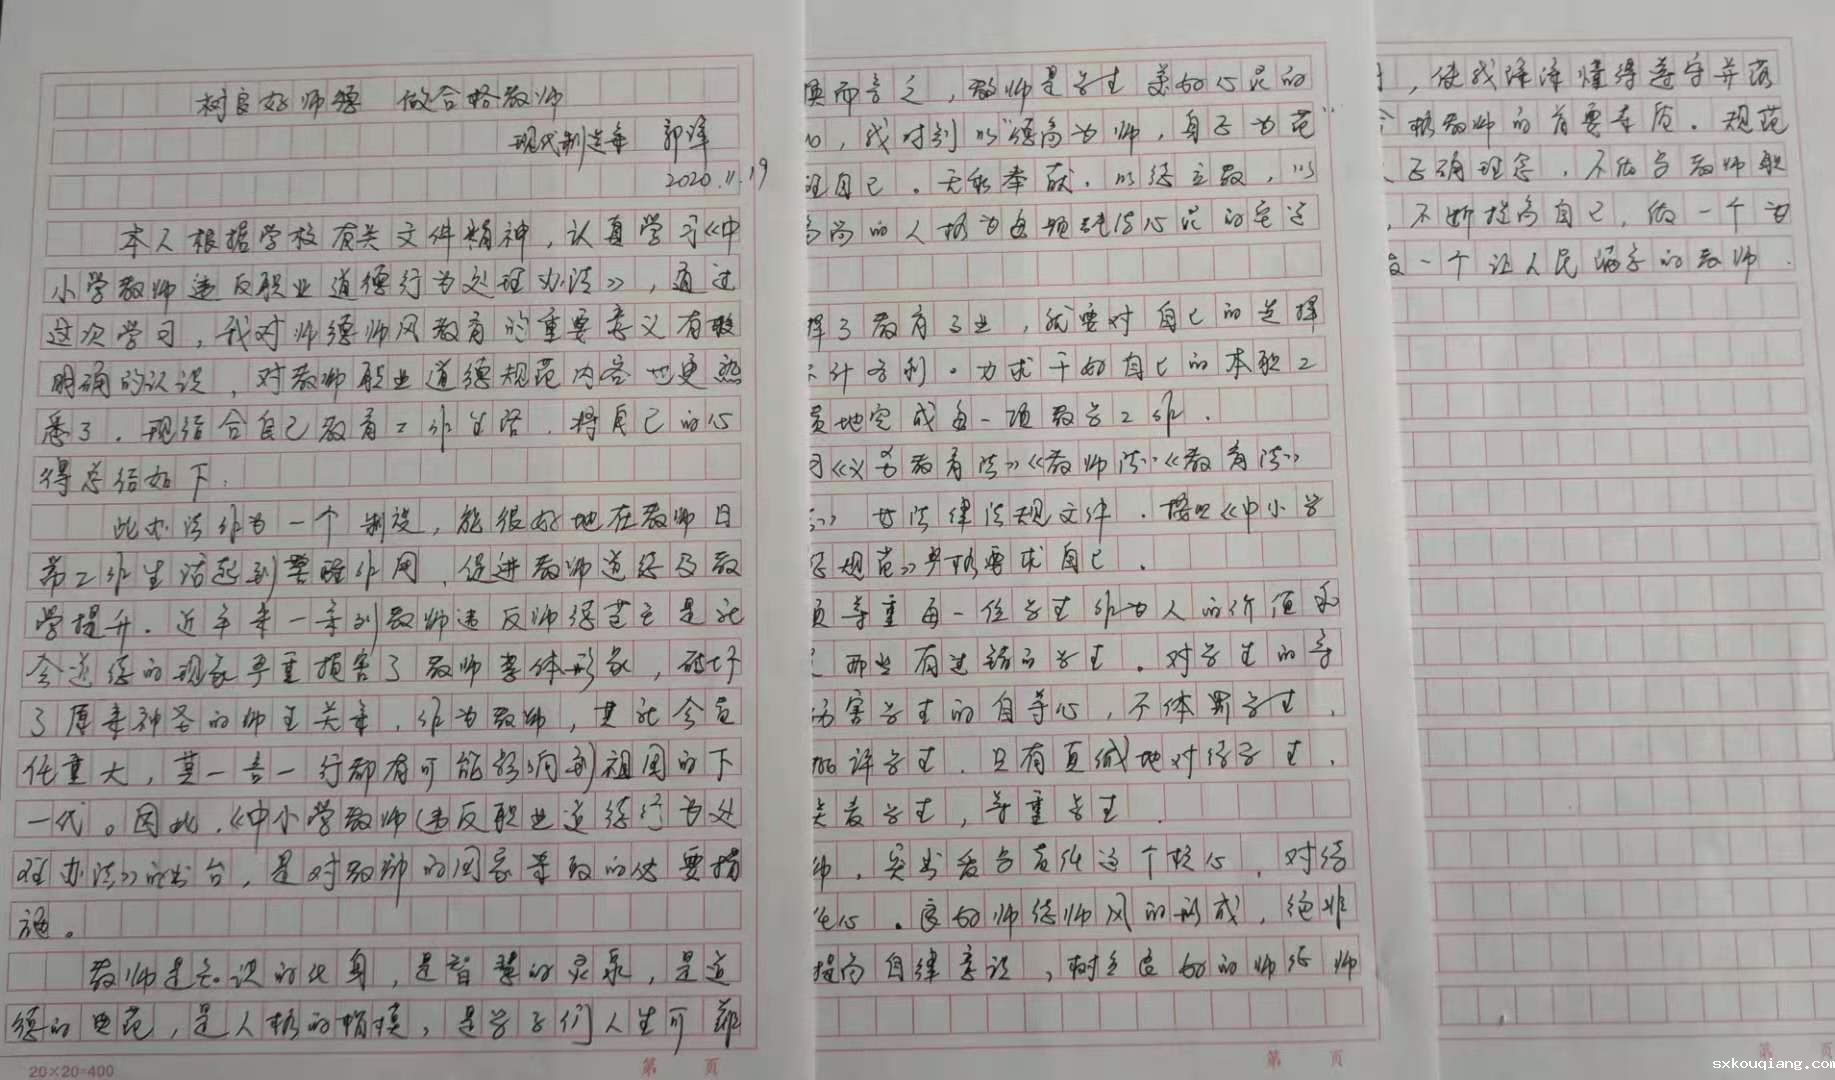 树良好师德 做合格教师
现代制造系 郭锋
2020.11.19
本人根据学校有关文件精神，认真学习《中
小学教师违反职业道德行为处理办法》，通过
这次学习，我对师德师风教育的重要意义有较
明确的认识，对教师职业道德规范内容也更熟
悉了．现结合自己教育工作生活．将自己的心
得总结如下．
此办法作为一个制度，能很好地在教师日
常工作生活起到警醒作用，促进教师道德及教
学提升．近年来一系列教师违反师德甚至是社
会道德的现象严重损害了教师整体形象，破坏
了原来神圣的师生关系．作为教师，其社会责
任重大，其一言一行都有可能影响到祖国的下
一代。因此．《中小学教师违反职业道德行为处
理办法》的出台，是对教师的国家导致的必要措
施。
教师是知识的化身，是智慧的灵泉，是道
德的典范，是人格的楷模，是学子们人生可靠
换而言之，教师是学生美好心灵的
，我时刻以“德高为师，身正为范”
自己．无私奉献．以德立教，以
高尚的人格为每颗纯洁心灵的塑造
择了教育事业，就要对自己的选择
不计名利。力求干好自己的本职工
地完成每一项教学工作．
习《义务教育法》《教师法》《教育法》
》等法律法规文件．按照《中小学
规范》严格要求自己．
尊重每一位学生作为人的价值和
那些有过错的学生．对学生的
伤害学生的自尊心，不体罚学生．
评学生．只有真诚地对待学生．
关爱学生，尊重学生．
师．突出爱与责任这个核心．对待
心．良好师德师风的形成，绝非
提高自律意识，树立良好的师德师
，使我深深懂得遵守并落
格教师的首要素质．规范
正确理念．不做与教师职
．不断提高自己．做一个为
一个让人民满意的教师．
20×20=400
第 页
第 页
第 页
sxkouqiang.com